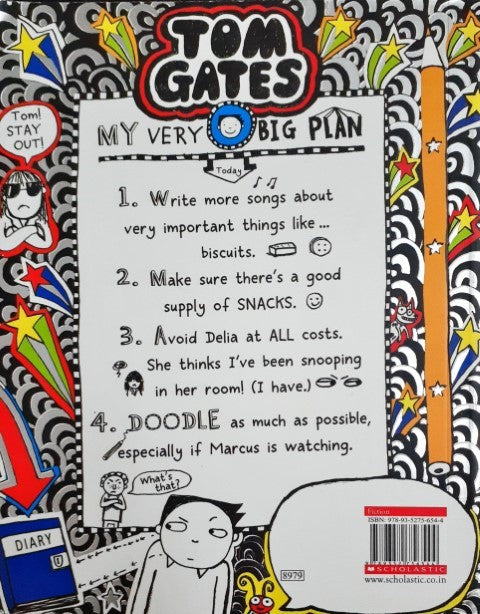 TOM
GATES
Tom!
STAY
OUT!
MY VERY BIG PLAN
Today
1. Write more songs about
very important things like...
biscuits.
2. Make sure there's a good
supply of SNACKS.
3. Avoid Delia at ALL costs.
She thinks I've been snooping
in her room! (I have.)
4. DOODLE as much as possible,
especially if Marcus is watching.
What's
that?
DIARY
8979
Fiction
ISBN: 978-93-5275-654-4
SCHOLASTIC
www.scholastic.co.in